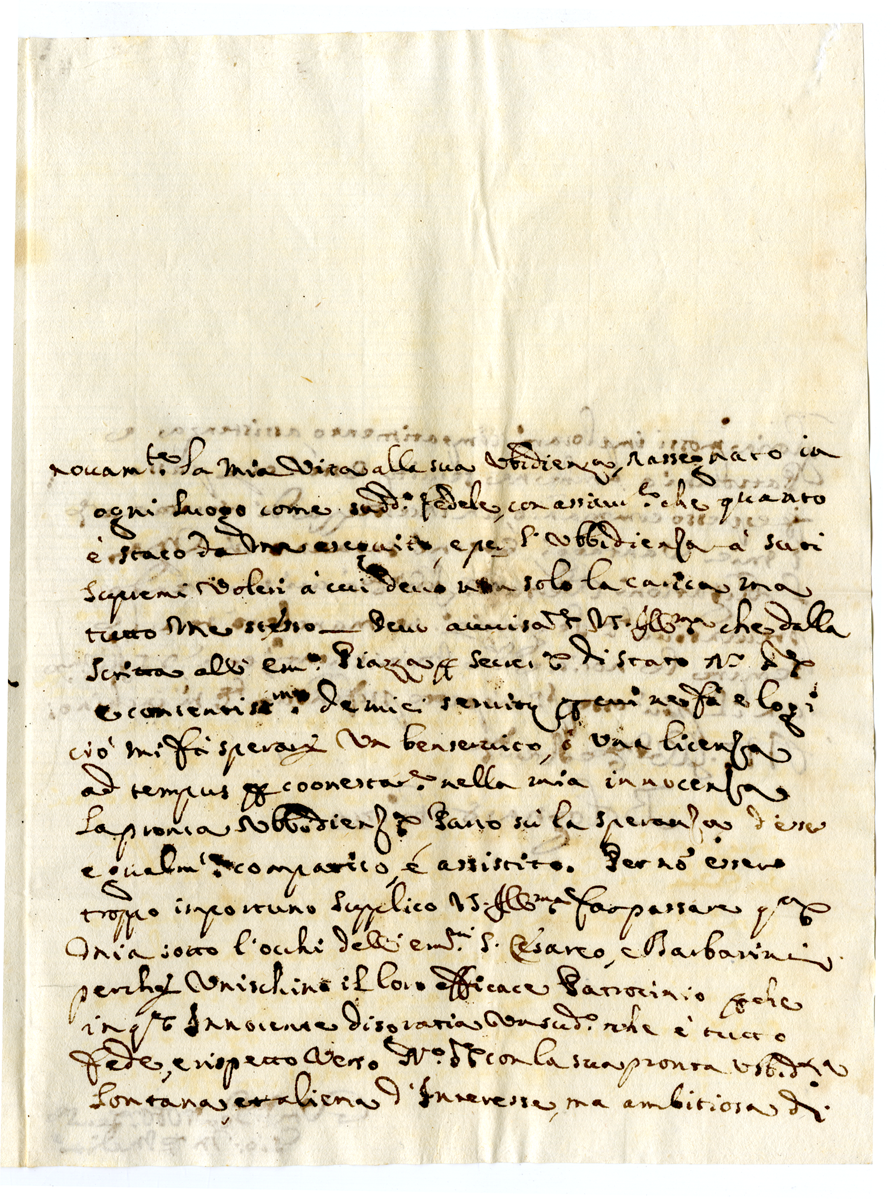 novam.te La Mia Vita alla sua Vbidienza, Rassegnato in
ogni Luogo come sudd.o Fedele, con assicur.e che quanto
è stato da me eseguito, e per L'Vbbidienza a' suoi
supremi Voleri à cui devo non solo la carica ma
tutto me stesso — Devo avvisar V.S. Ill.ma che dalla
scritta alli em.i Piazza Secret.o di stato N.
e contentiss.mo de miei servitij
ciò mi fà sperare Vn benservito, ò una licenza
ad tempus coonestar.e nella mia innocenza
La pronta Vbbidienza Parto sù la speranza d'esse
egualm.te compatito, e assistito. Per nò essere
troppo importuno supplico V.S. Ill.ma far passare
Mia sotto l'occhi delli em.mi S. Cesareo, e Barbarini
perche Vnischino il loro efficace Patrocinio che
in q.ta Innocente disgratia Vn sud.o che è tutto
Fede, e rispetto Verso N.o con la sua pronta vbid.za
Lontana, et aliena d'Interesse, ma ambitiosa di